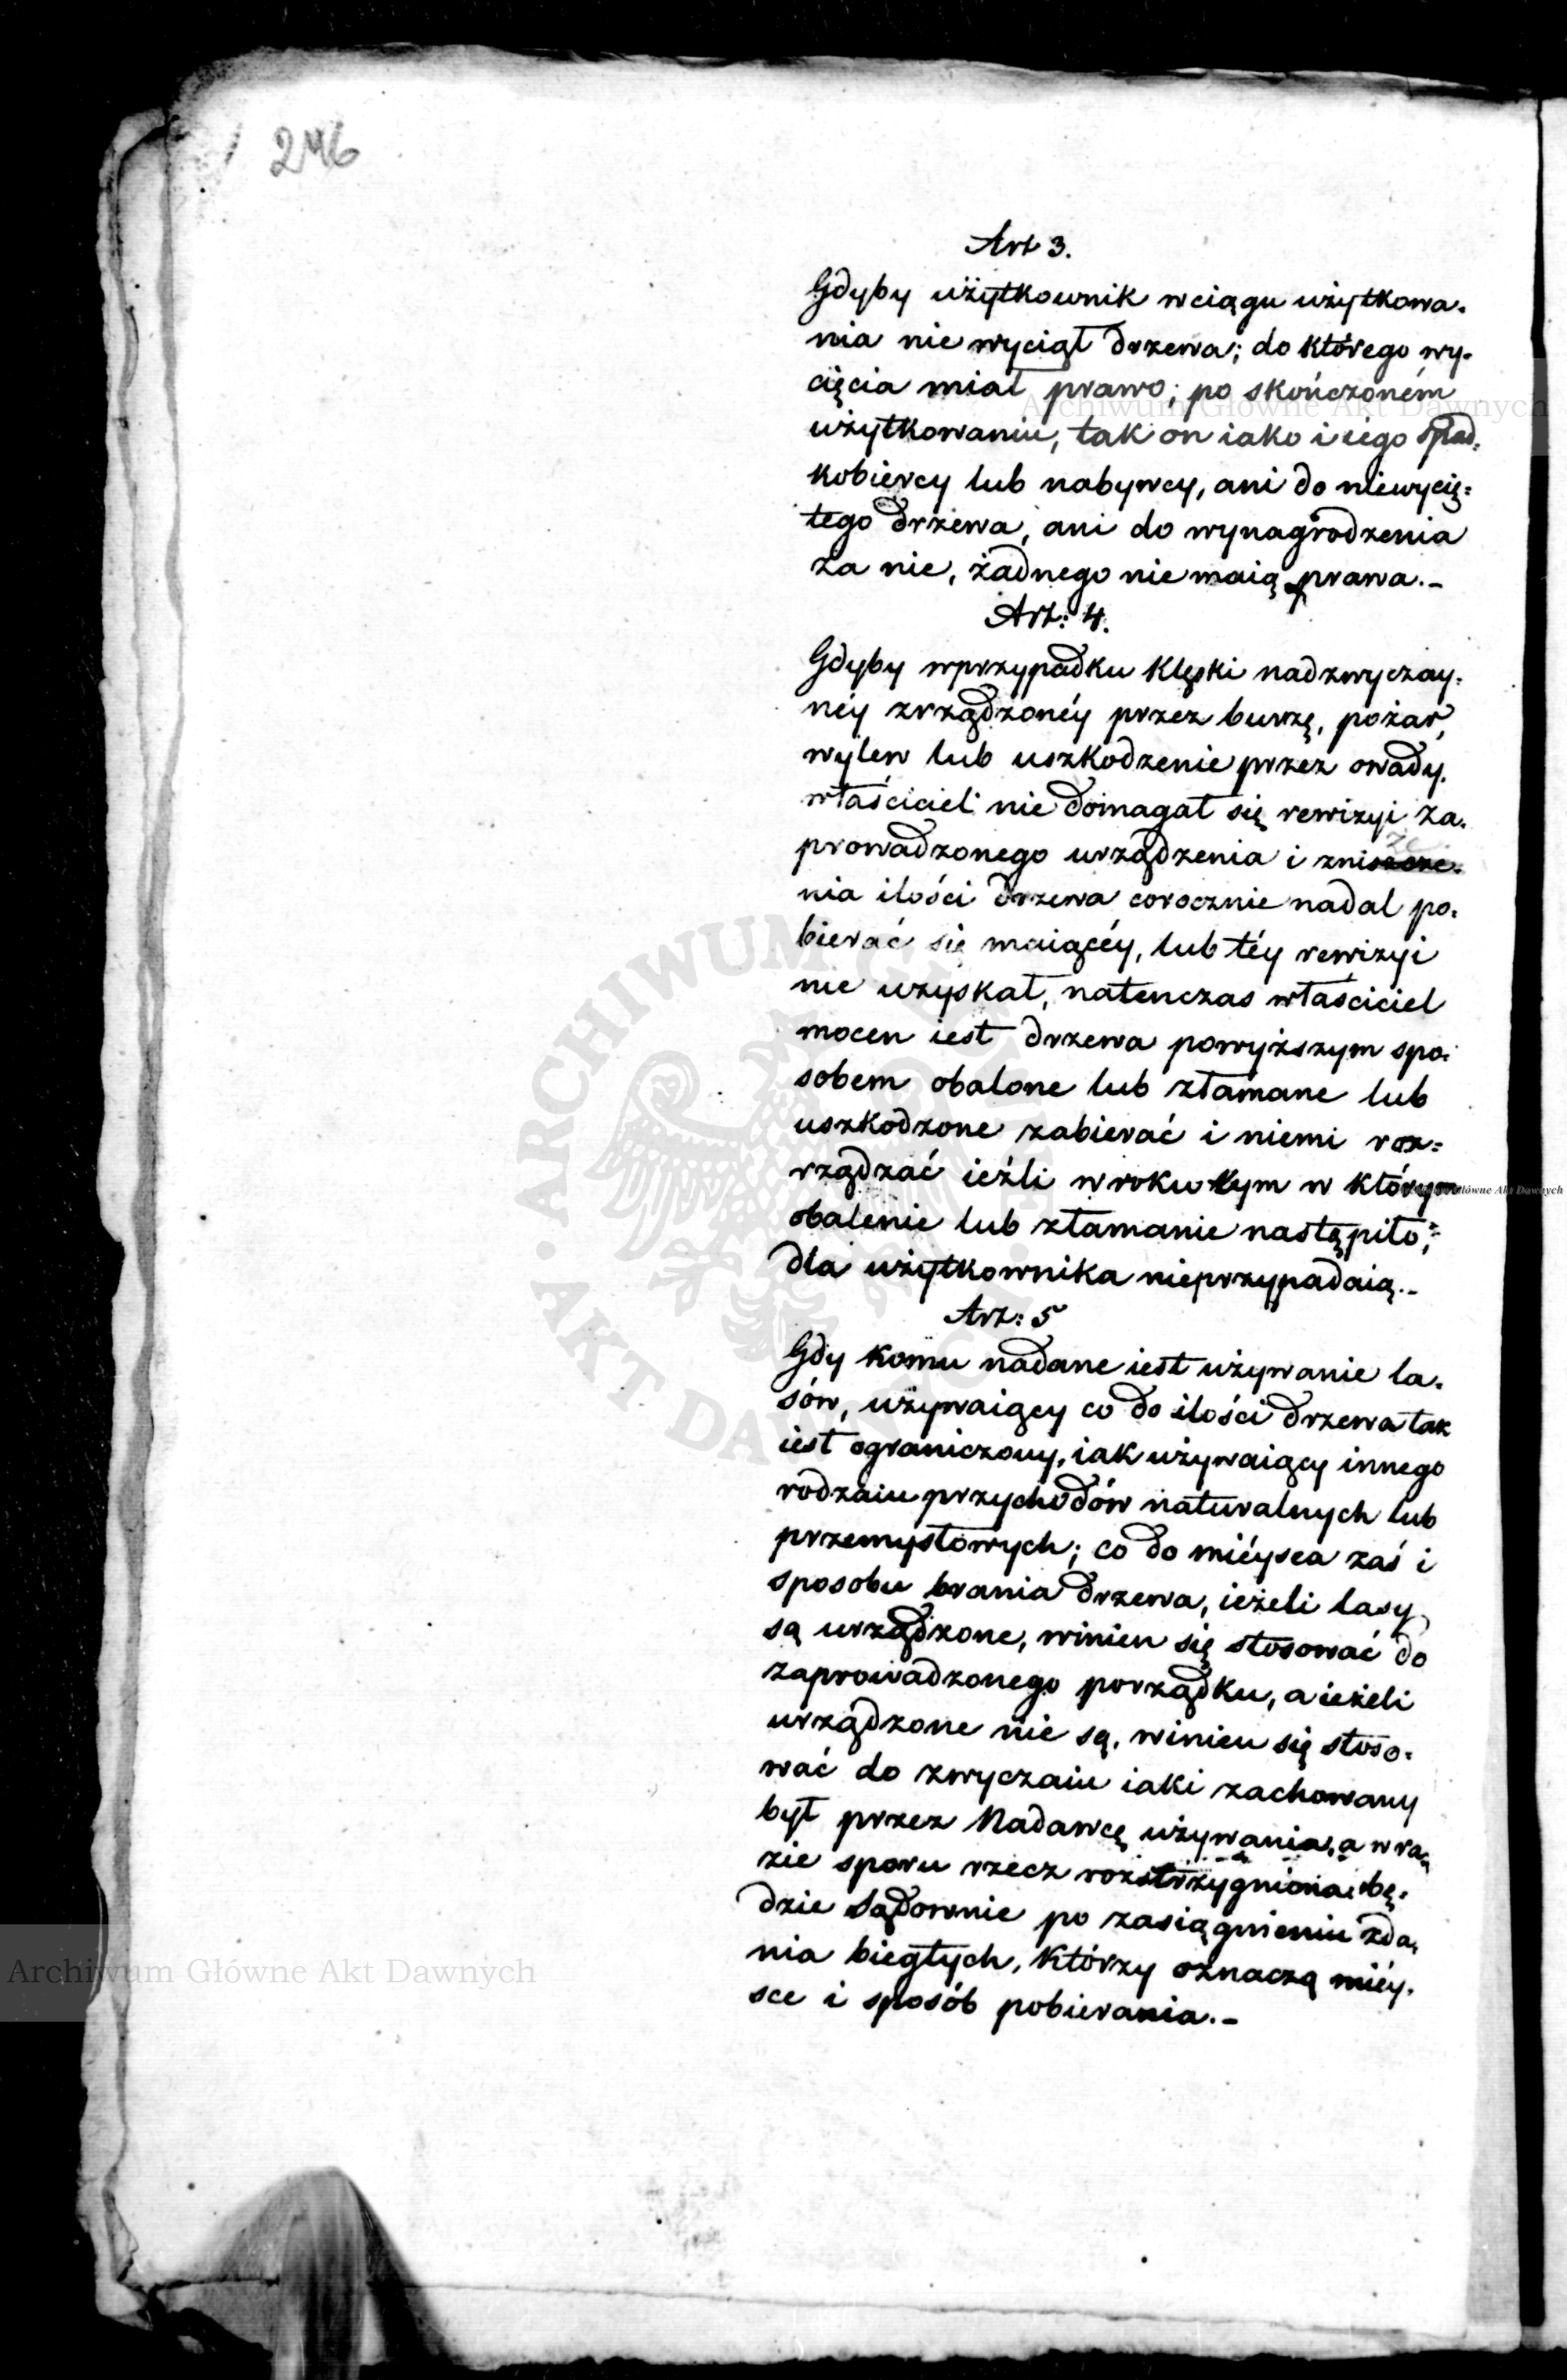 246
Art 3.
Gdyby użytkownik w ciągu użytkowa-
nia nie wyciął drzewa; do którego wy-
cięcia miał prawo; po skończoném
użytkowaniu, tak on iako i iego spad-
kobiercy lub nabywcy, ani do niewycię=
tego drzewa, ani do wynagrodzenia
za nie, żadnego nie maią prawa.-
Art: 4.
Gdyby w przypadku klęski nadzwyczay-
néy zrządzonéy przez burzę, pożar,
wylew lub uszkodzenie przez owady.
właściciel nie domagał się rewizyi za-
prowadzonego urządzenia i zniże-
nia ilości drzewa corocznie nadal po-
bierać się maiącéy, lub téy rewizyi
nie uzyskał, natenczas właściciel
mocen iest drzewa powyższym spo-
sobem obalone lub złamane lub
uszkodzone zabierać i niemi roz=
rządzać ieźli w roku tym w którym
obalenie lub złamanie nastąpiło,
dla użytkownika nieprzypadaią.-
Art: 5
Gdy komu nadane iest używanie la-
sów, używaiący co do ilości drzewa tak
iest ograniczony, iak używaiący innego
rodzaiu przychodów naturalnych lub
przemysłowych; co do miéysca zaś i
sposobu brania drzewa, ieżeli lasy
są urządzone, winien się stosować do
zaprowadzonego porządku, a ieżeli
urządzone nie są, winien się stoso-
wać do zwyczaiu iaki zachowany
był przez Nadawcę używania, a w ra-
zie sporu rzecz rozstrzygniona bę-
dzie sądownie po zasiągnieniu zda-
nia biegłych, którzy oznaczą miéy-
sce i sposób pobierania.-
Archiwum Główne Akt Dawnych
Archiwum Główne Akt Dawnych
Główne Akt Dawnych
ARCHIWUM GŁÓWNE AKT DAWNYCH